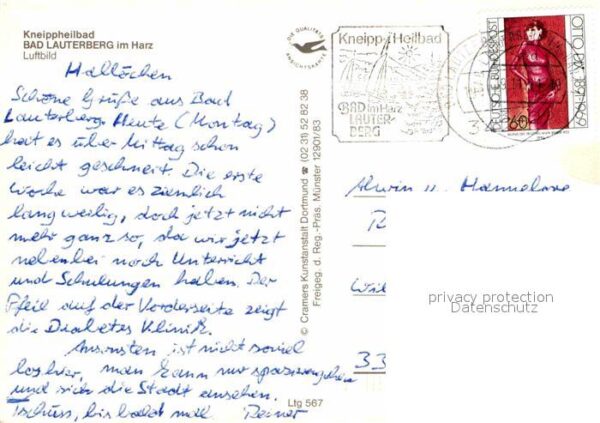 Kneippheilbad
BAD LAUTERBERG im Harz
Luftbild
Hallöchen
Schöne Grüße aus Bad
Lauterberg. Heute (Montag)
hat es über Mittag schon
leicht geschneit. Die erste
Woche war es ziemlich
langweilig, doch jetzt nicht
mehr ganz so, da wir jetzt
nebenbei noch Unterricht
und Schulungen haben. Der
Pfeil auf der Vorderseite zeigt
die Diabetes Klinik.
Ansonsten ist nicht soviel
los hier, man kann nur spazierengehen
und sich die Stadt ansehen.
Tschüss, bis bald mal Reiner
DIE QUALITÄTS
ANSICHTSKARTE
© Cramers Kunstanstalt Dortmund ☎ (02 31) 52 82 38
Freigeg. d. Reg.-Präs. Münster 12901/83
Ltg 567
Kneipp-Heilbad
BAD im Harz
LAUTER-
BERG
DEUTSCHE BUNDESPOST
60
OTTO DIX 1891-1969
Alwin u. Hannelore
privacy protection
Datenschutz
33